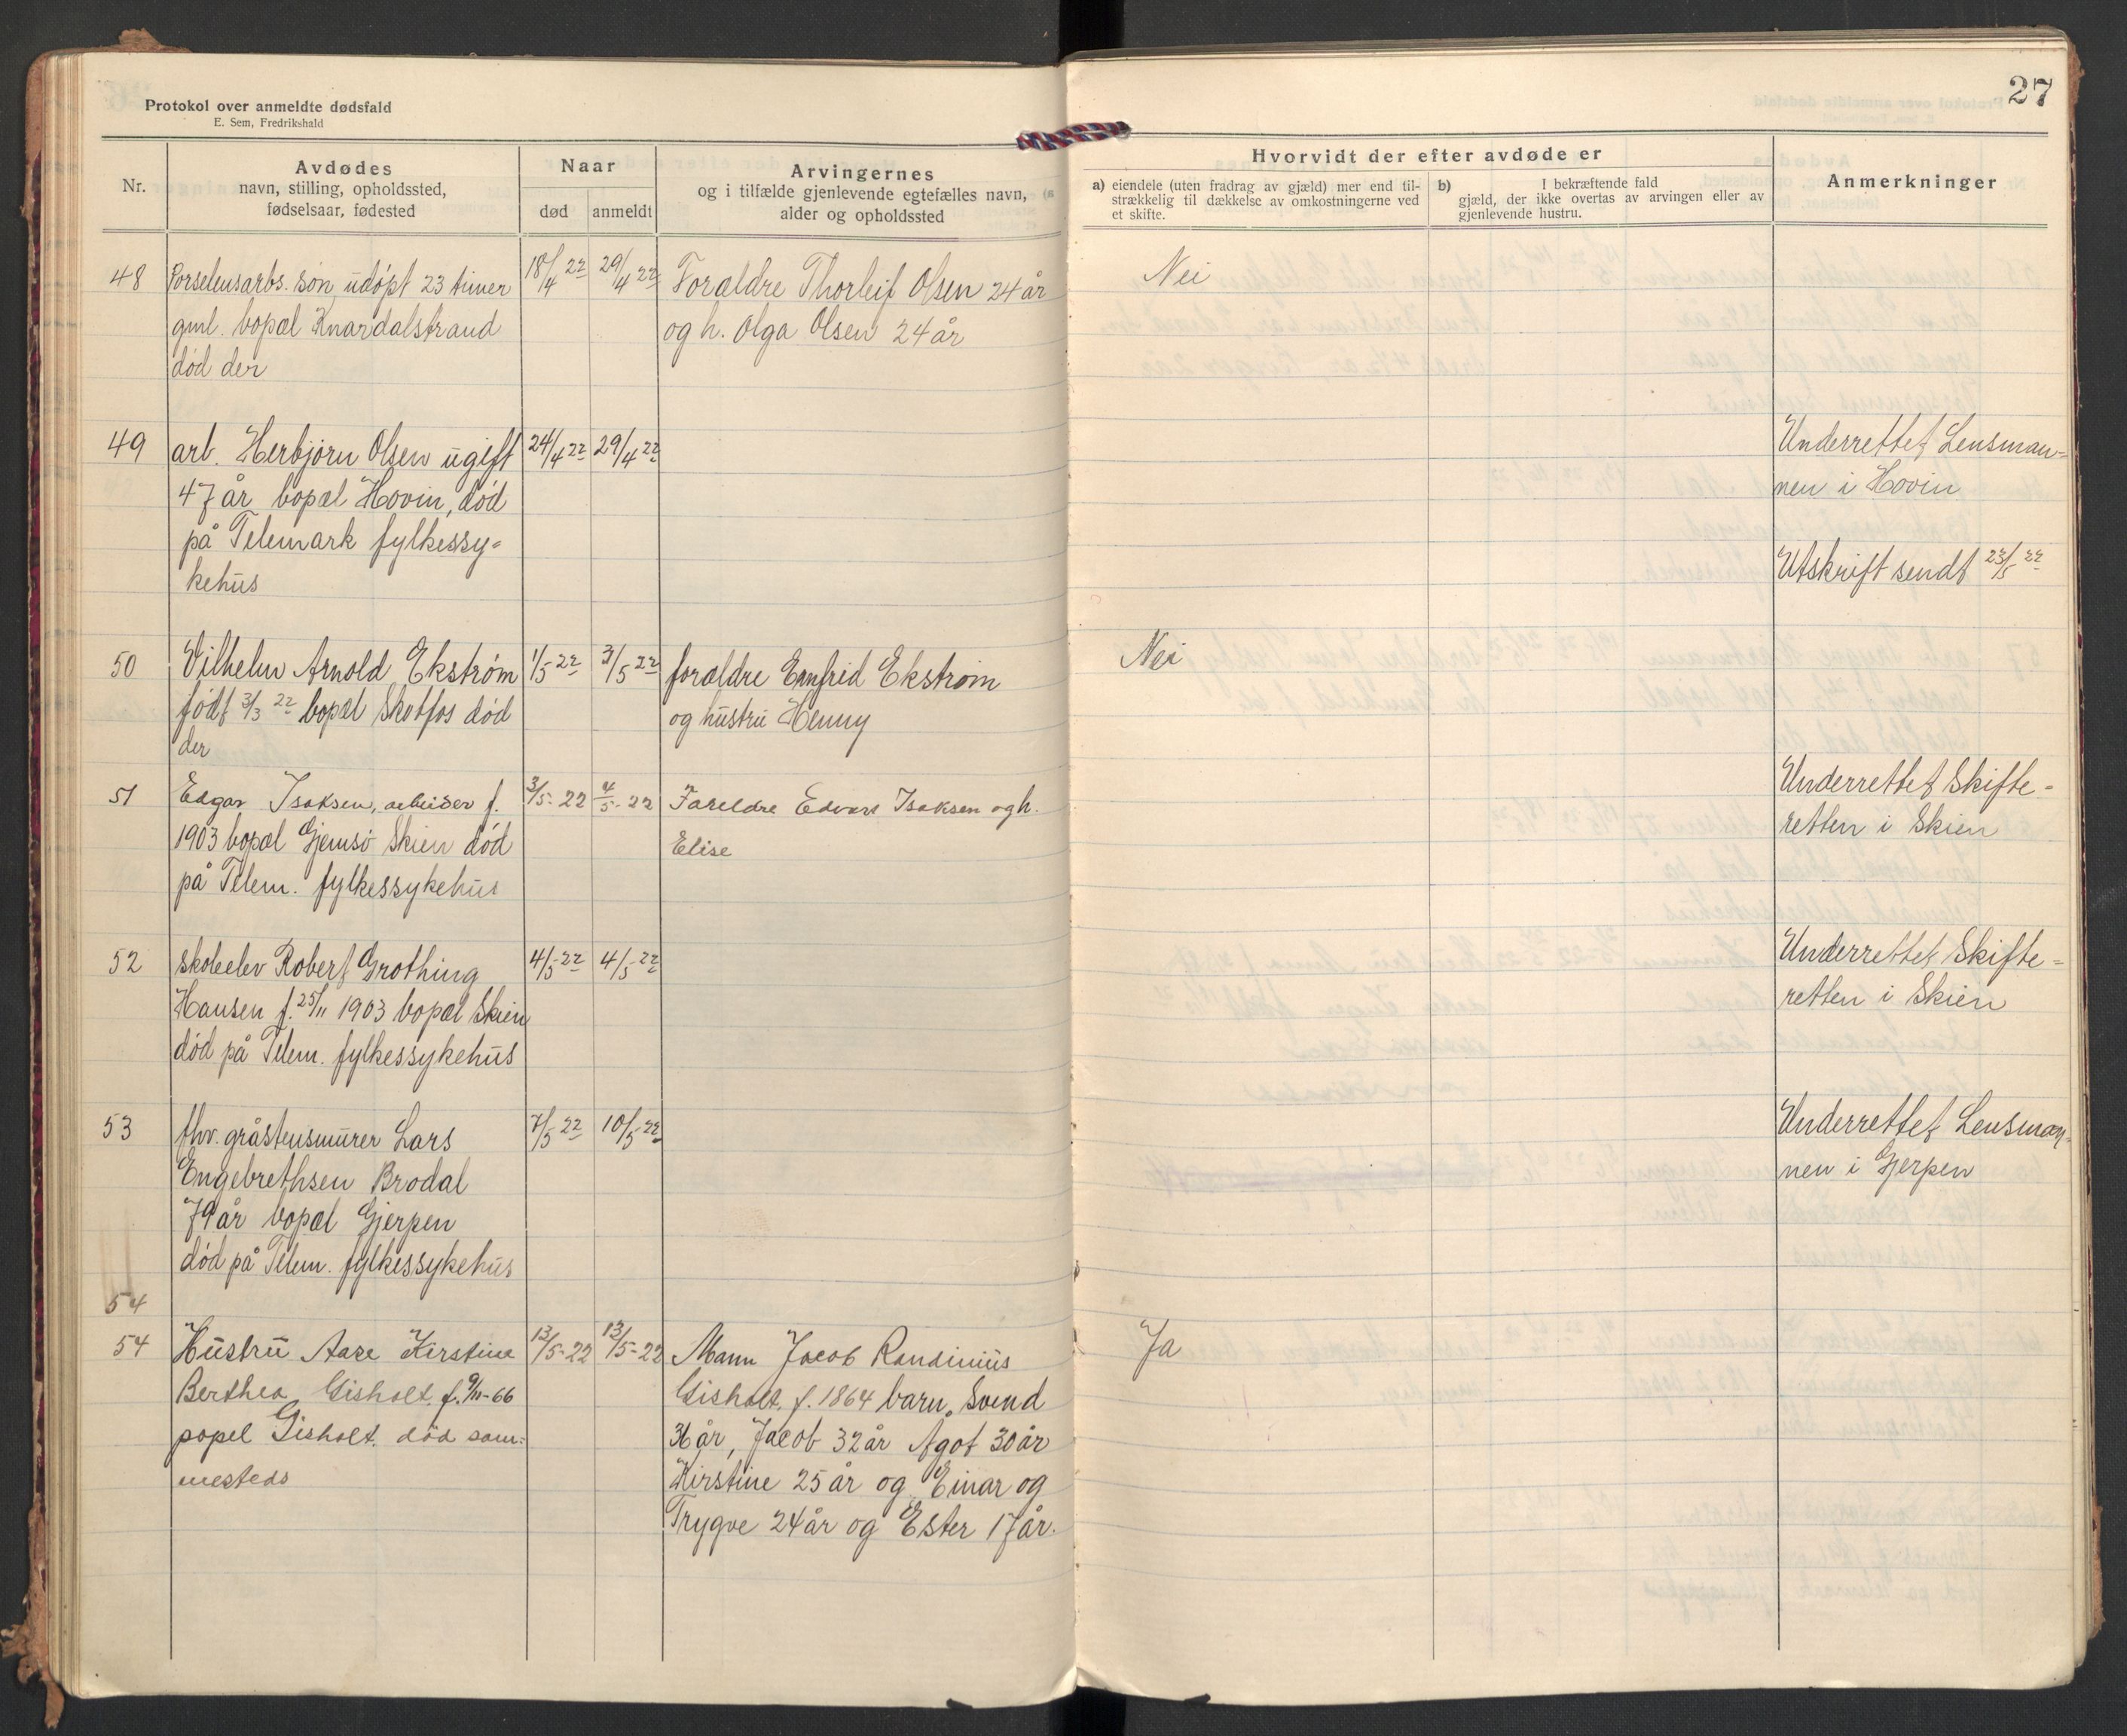 27
Protokol over anmeldte dødsfald
E. Sem, Fredrikshald
Nr.
Avdødes
navn, stilling, opholdssted,
fødselsaar, fødested
Naar
død
anmeldt
Arvingernes
og i tilfælde gjenlevende egtefælles navn,
alder og opholdssted
Hvorvidt der efter avdøde er
a) eiendele (uten fradrag av gjæld) mer end til-
strækkelig til dækkelse av omkostningerne ved
et skifte.
b) I bekræftende fald
gjæld, der ikke overtas av arvingen eller av
gjenlevende hustru.
Anmerkninger
48 Porselensarbs. søn, udøpt 23 timer 18/4 22 29/4 22 Forældre Thorleif Olsen 24 år Nei
gml. bopæl Knardalstrand og h. Olga Olsen 24 år
død der
49 arb. Herbjørn Olsen ugift 24/4 22 29/4 22 Underrettet Lensman=
47 år bopæl Hovin, død nen i Hovin
på Telemark fylkessy=
kehus Utskrift sendt 23/5 22
50 Vilhelm Arnold Ekstrøm 1/5 22 3/5 22 forældre Ernfrid Ekstrøm Nei
født 3/3 22 bopæl Skotfos død og hustru Henny
der
51 Edgar Isaksen, arbeider f. 3/5-22 4/5-22 Foreldre Edvart Isaksen og h. Underrettet Skifte=
1903 bopæl Gjemsø Skien død Elise retten i Skien
på Telem. fylkessykehus
52 skoleelev Robert Grothing 4/5 22 4/5 22 Underrettet Skifte=
Hansen f. 25/11 1903 bopæl Skien retten i Skien
død på Telem. fylkessykehus
53 fhv. gråstensmurer Lars 7/5 22 10/5 22 Underrettet Lensman=
Engebrethsen Brodal nen i Gjerpen
79 år bopæl Gjerpen
død på Telem. fylkessykehus
54
54 Hustru Aase Kirstine 13/5-22 13/5-22 Mann Jacob Randinius Ja
Berthea Gisholt. f. 9/11-66 Gisholt, f. 1864 barn. Svend
popel Gisholt. død sam= 36 år, Jacob 32 år Ågot 30 år
mesteds Kirstine 25 år og Einar og
Trygve 24 år og Ester 17 år.